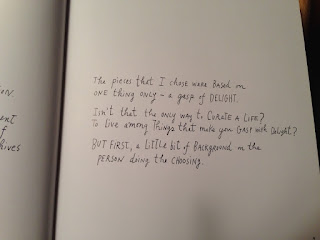 The pieces that I chose were BASED on
ONE THING ONLY – a gasp of DELIGHT.
Isn't that the only way to CURATE A LiFE?
To live among Things that make you GASP with Delight?
BUT FIRST, a Little bit of BACKGROUND on the
PERSON doing the CHOOSING.